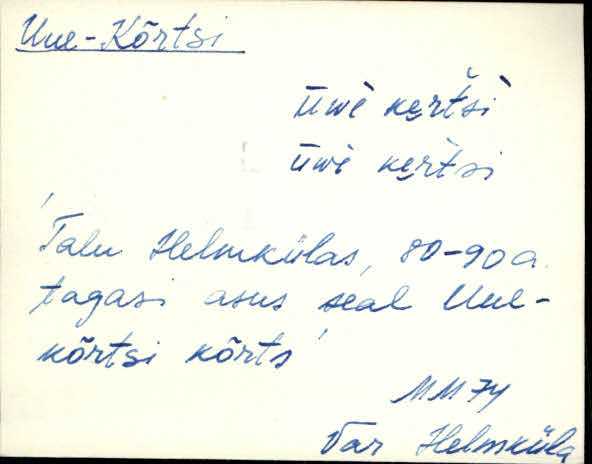 Uue-Kõrtsi
ūwè ke̮rt̆šì
ūwè ke̮rtsi
'Talu Helmkülas, 80-90 a.
tagasi asus seal Uue-
kõrtsi kõrts'
MM 74
Var Helmküla